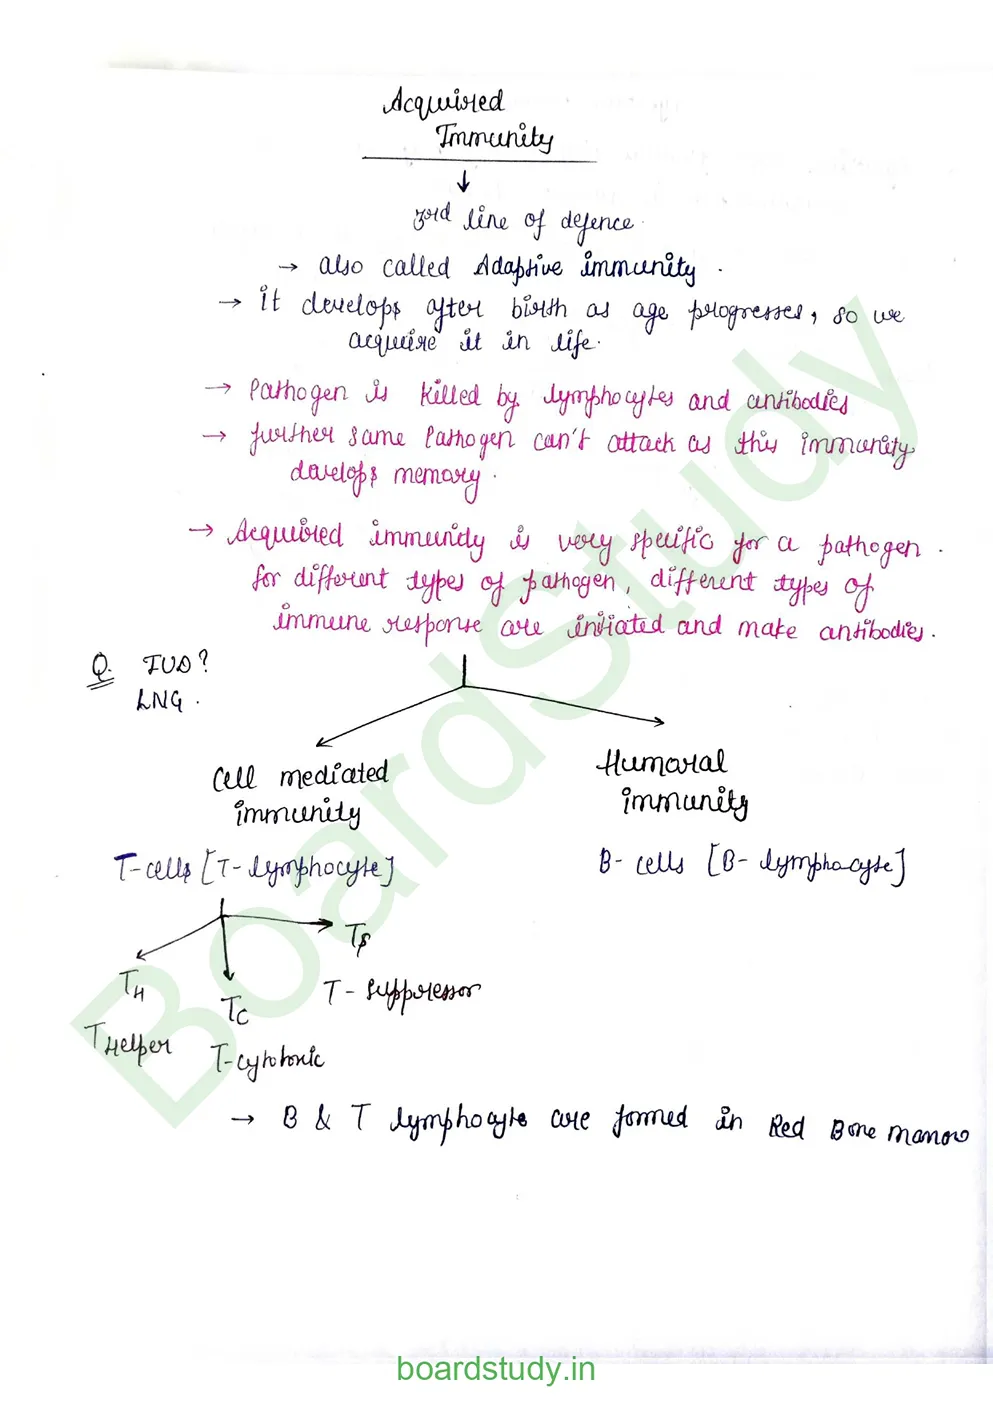 Acquired
Immunity
↓
3rd line of defence.
→ also called Adaptive immunity.
→ it develops after birth as age progresses, so we
acquire it in life.
→ Pathogen is killed by lymphocytes and antibodies
→ further same Pathogen can't attack as this immunity
develops memory.
→ Acquired immunity is very specific for a pathogen.
for different types of pathogen, different types of
immune response are initiated and make antibodies.
Q. IUD?
LNG.
Cell mediated
immunity
Humoral
immunity
T-cells [T-lymphocyte]
B-cells [B-lymphocyte]
TH
THelper
TC
T-cytotoxic
TS
T-suppressor
→ B & T lymphocyte are formed in Red Bone marrow
BoardStudy
boardstudy.in